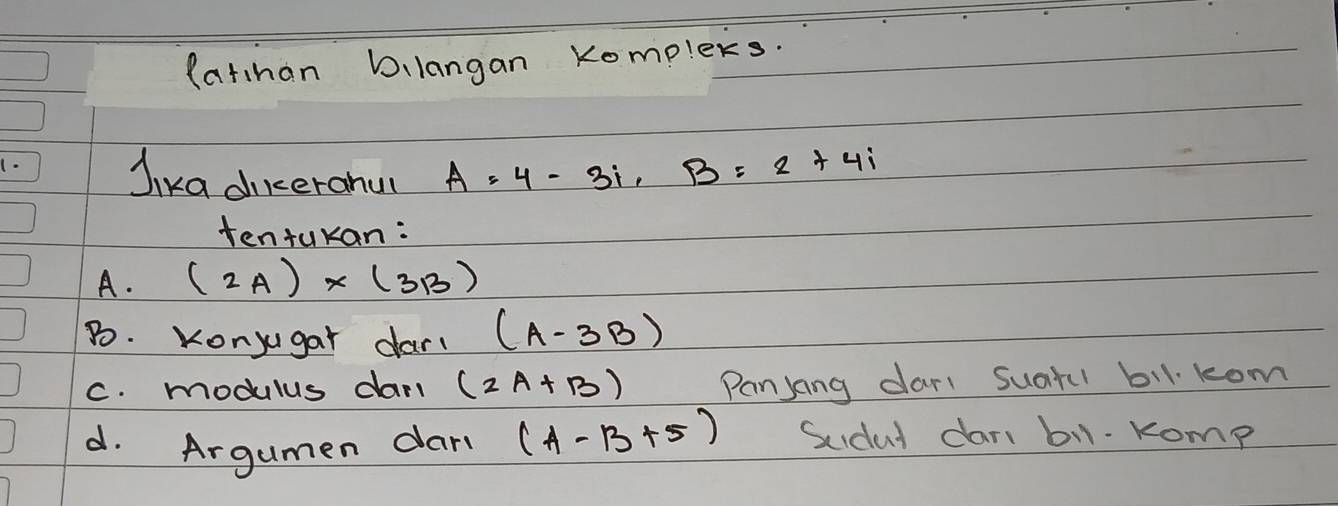 latihan bilangan kompleks.
1. Jika diketahui A = 4 - 3i, B = 2 + 4i
tentukan:
A. (2A) × (3B)
B. konjugat dari (A - 3B)
c. modulus dari (2A + B) Panjang dari suatu bil. kom
d. Argumen dari (A - B + 5) Sudut dari bil. komp